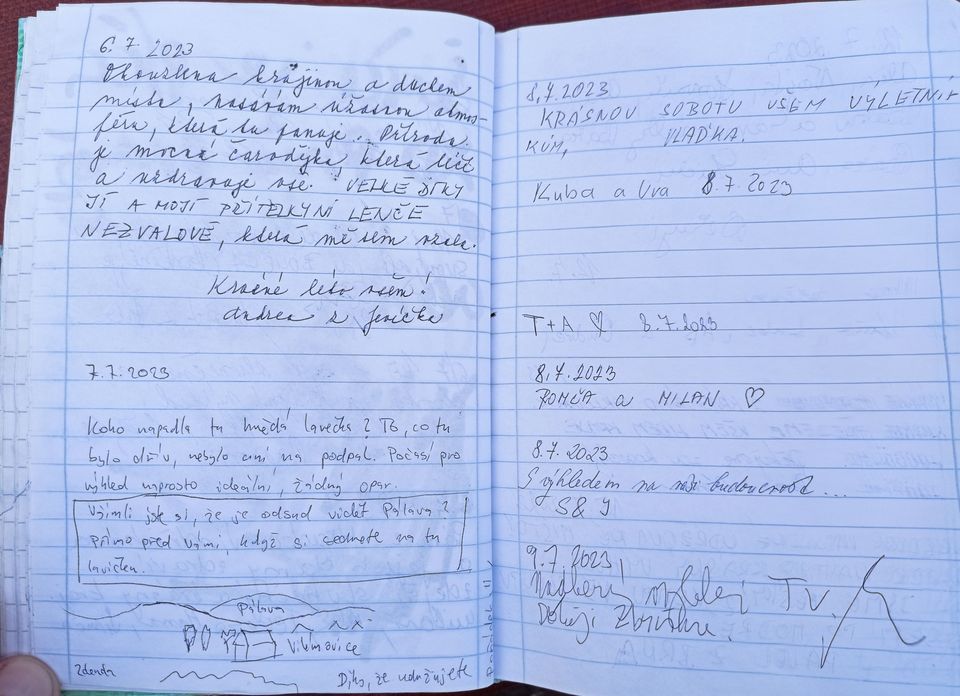 6. 7. 2023
Okouzlena krajinou a duchem
místa, nasávám úžasnou atmos-
féru, která tu panuje.. Příroda
je mocná čarodějka, která léčí
a uzdravuje vše. VELKÉ DÍKY
JÍ A MOJÍ PŘÍTELKYNÍ LENČE
NEZVALOVÉ, která mě sem vzala.
Krásné léto všem!
Andrea z Jevíčka
7.7.2023
Koho napadla ta hnědá lavečka? To, co tu
bylo dřív, nebylo ani na podpal. Počasí pro
výhled naprosto ideální, žádný opar.
Všimli jste si, že je odsud vidět Pálava?
Přímo před vámi, když si sednete na tu
lavičku.
Pálava
Vilémovice
Zdenda
Díky, že udržujete
8.7.2023
KRÁSNOU SOBOTU VŠEM VÝLETNÍ-
KŮM, VLAĎKA.
Kuba a 8.7.2023
T+A ♡ 8.7.2023
8.7.2023
ROMČA a MILAN ♡
8.7.2023
S výhledem na naši budoucnost...
S&J
9.7.2023
Nádherný TV.